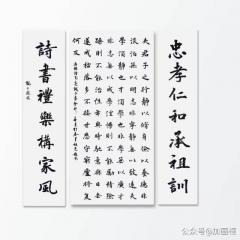 忠孝仁和承祖訓
夫君子之行靜以修身儉以養德非
淡泊無以明志非寧靜無以致遠夫
學須靜也才須學也非學無以廣才
非志無以成學淫慢則不能勵精險
躁則不能治性年與時馳意與日去
遂成枯落多不接世悲守窮廬將復
何及
詩書禮樂構家風
公众号·加画框